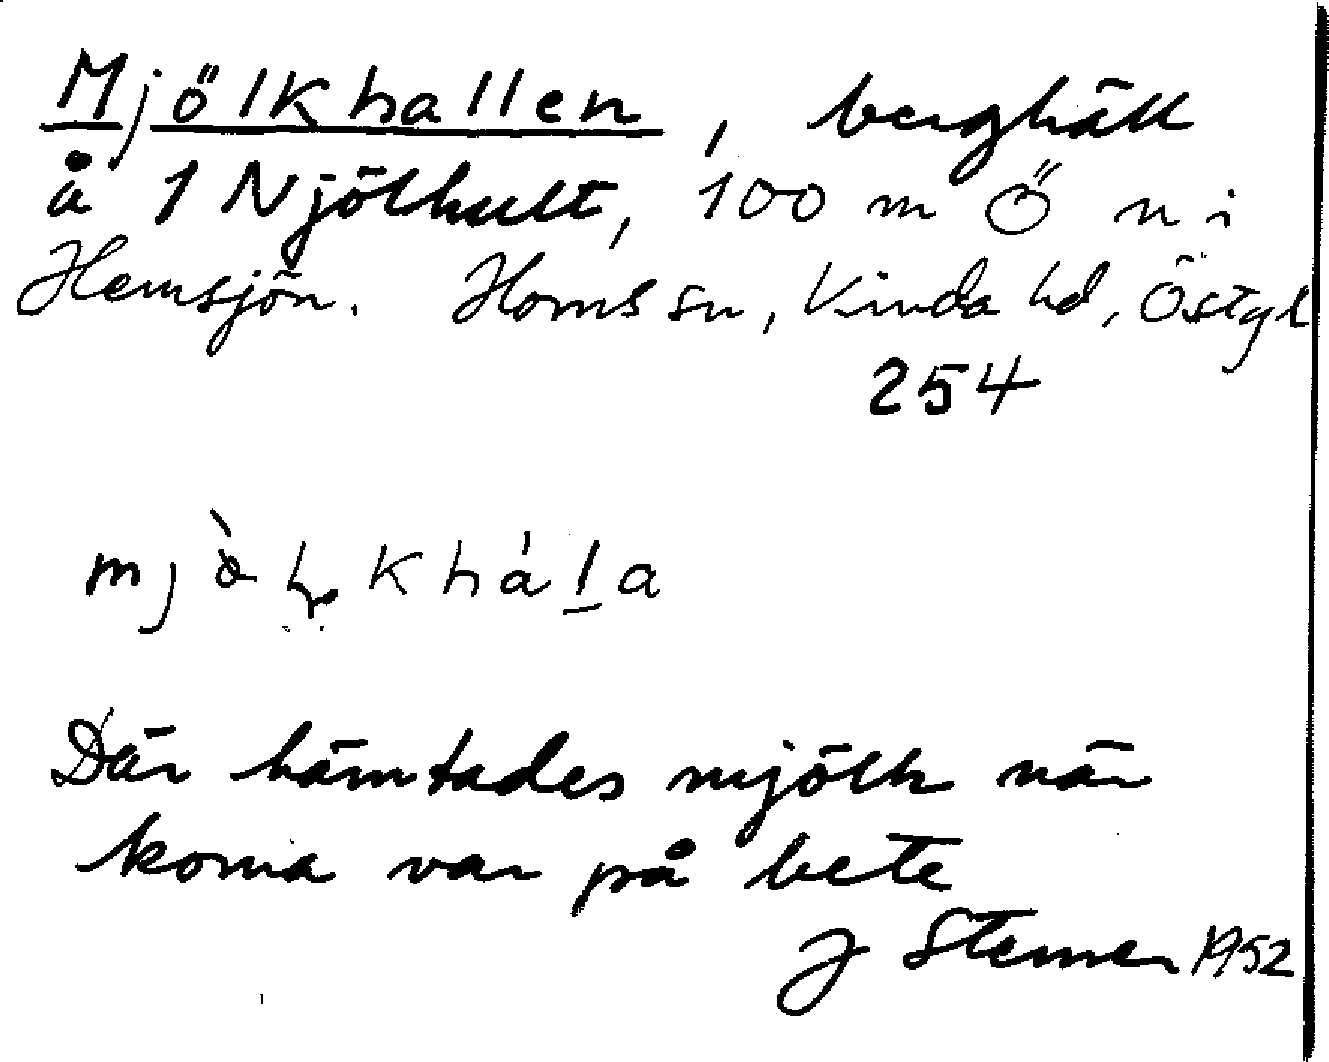 Mjölkhallen, berghäll
å 1 Njölhult, 100 m Ö n i
Hemsjön. Horns sn, Kinda hd, Östgl
254
Där hämtades mjölk när
korna var på bete
J Sterner 1952